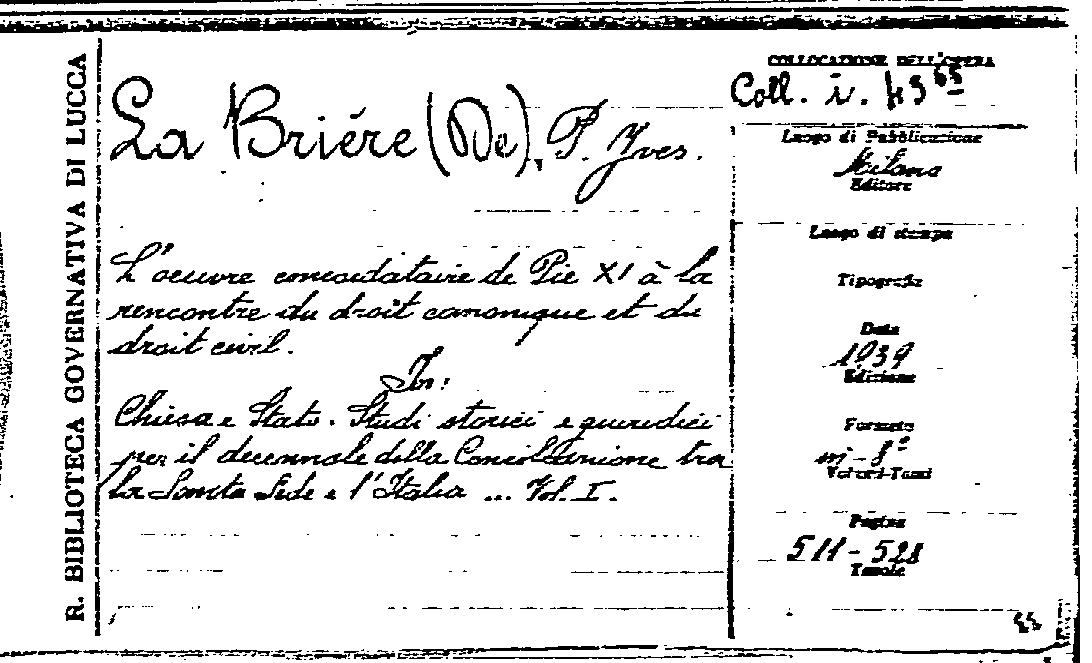 R. BIBLIOTECA GOVERNATIVA DI LUCCA
La Briére (De), P. Yves.
L'oeuvre concordataire de Pie XI à la
rencontre du droit canonique et du
droit civil.
In:
Chiesa e Stato. Studi storici e giuridici
per il decennale della Conciliazione tra
la Santa Sede e l'Italia ... Vol. I.
COLLOCAZIONE DELL'OPERA
Coll. i. 43
Luogo di Pubblicazione
Milano
Editore
Luogo di stampa
Tipografia
Data
1939
Edizione
Formato
in-8°
Volumi-Tomi
Pagine
511-528
Tavole